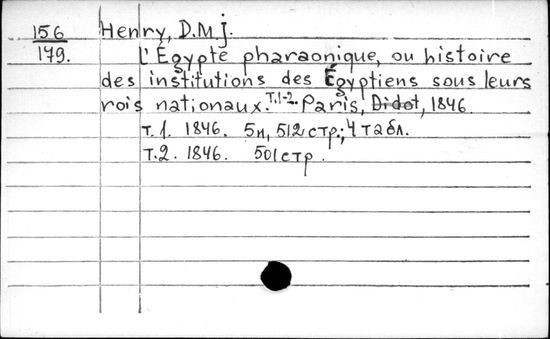 156 Henry, D.M.J.
179. L'Égypte pharaonique, ou histoire
des institutions des Égyptiens sous leurs
rois nationaux. Т.1-2. Paris, Didot, 1846.
Т.1. 1846. 5н, 512 стр.; 4 табл.
Т.2. 1846. 501 стр.